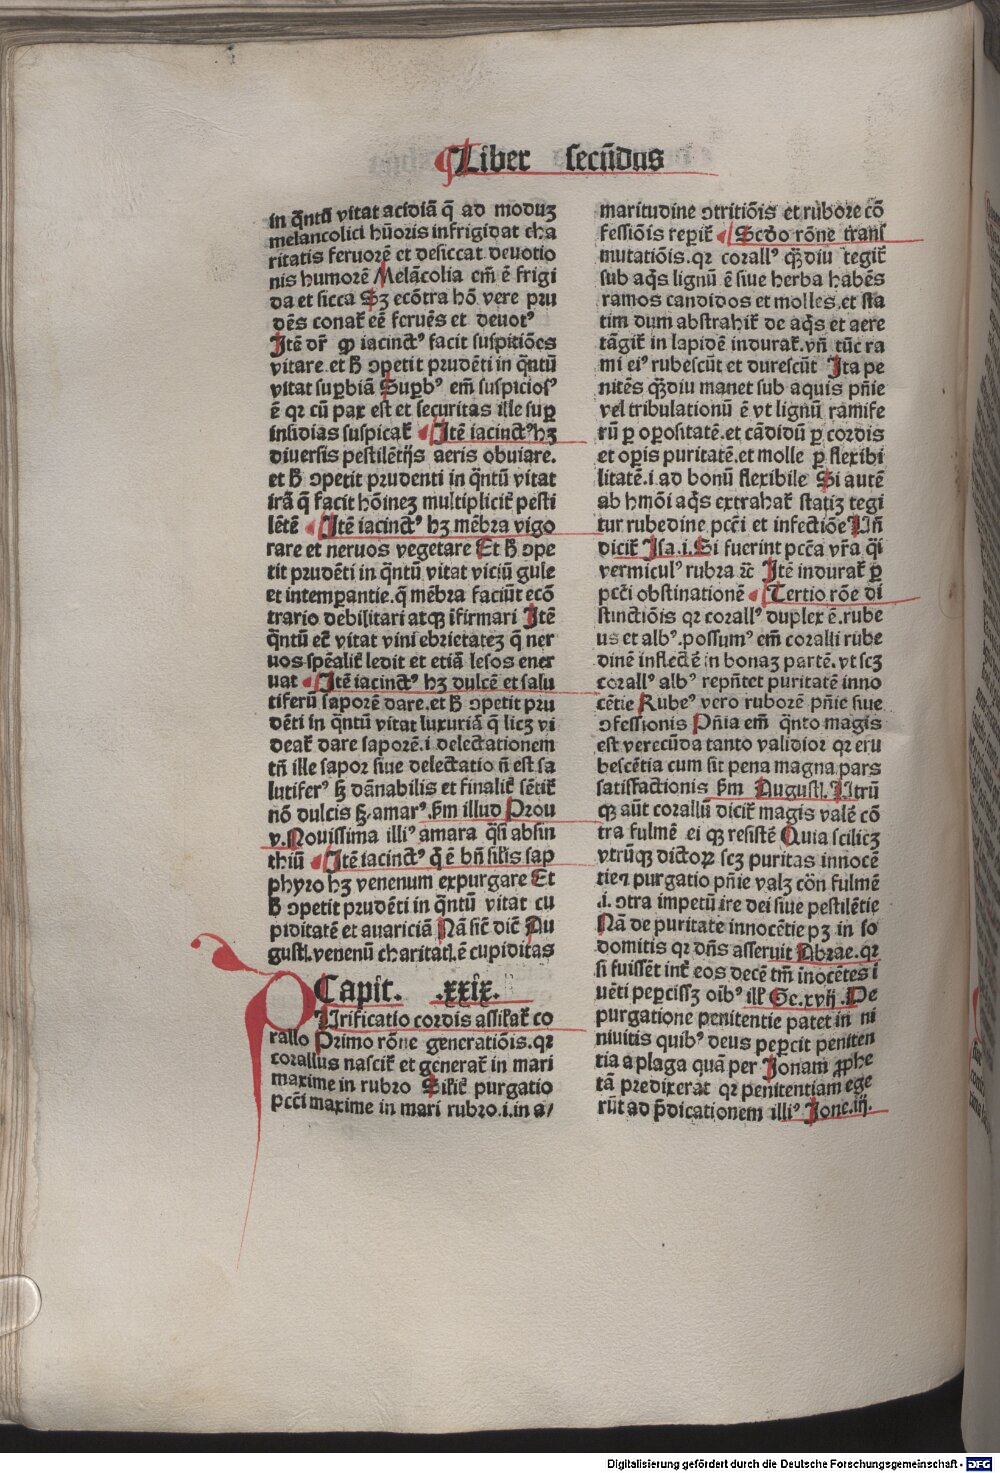 Liber secūdus
in q̄ntū vitat acidiā q̄ ad moduȝ
melancolici hūoris infrigidat cha
ritatis feruorē et desiccat deuotio
nis humorē Melācolia em̄ ē frigi
da et sicca Sȝ ecōtra hō vere pru
dēs conat᷑ eē feruēs et deuotꝰ
Jtē dr̄ ꝙ iacinctꝰ facit suspitiōes
vitare et ħ ꝯpetit prudēti in q̄ntū
vitat suꝑbiā Suꝑbꝰ em̄ suspiciosꝰ
ē qꝛ cū pax est et securitas ille suꝑ
insidias suspicat᷑ Jtē iacinctꝰ hȝ
diuersis pestilētijs aeris obuiare.
et ħ ꝯpetit prudenti in q̄ntū vitat
irā q̄ facit hōineȝ multiplicit᷑ pesti
lētē Jtē iacinctꝰ hȝ mēbra vigo
rare et neruos vegetare Et ħ ꝯpe
tit prudēti in q̄ntū vitat viciū gule
et intemꝑantie.q̄ mēbra faciūt ecō
trario debilitari atqꝫ īfirmari Jtē
q̄ntū ec̄ vitat vini ebrietateȝ q̄ ner
uos spēalit᷑ ledit et etiā lesos ener
uat Jtē iacinctꝰ hȝ dulcē et salu
tiferū saporē dare.et ħ ꝯpetit pru
dēti in q̄ntū vitat luxuriā q̄ licȝ vi
deat᷑ dare saporē.i delectationem
tn̄ ille sapor siue delectatio n̄ est sa
lutiferꝰ ꜩ dānabilis et finalit᷑ sētit᷑
nō dulcis ꜩ amarꝰ.ẜm illud Prou
v.Nouissima illiꝰ amara q̄si absin
thiū Jtē iacinctꝰ q̄ ē bn̄ silis sap
phyro hȝ venenum expurgare Et
ħ ꝯpetit prudēti in q̄ntū vitat cu
piditatē et auariciā Nā sic̄ dic̄ Au
gustꝰ.venenū charitatꝭ.ē cupiditas
Capit. .xxix.
PUrificatio cordis assilat᷑ co
rallo Primo rōne generatiōis.qꝛ
corallus nascit᷑ et generat᷑ in mari
maxime in rubro Silit᷑ purgatio
pctī maxime in mari rubro.i.in a/
maritudine ꝯtritiōis et rubore cō
fessiōis reperit᷑ Scd̄o rōne trans
mutatiōis.qꝛ corallꝰ q̄ȝdiu tegit᷑
sub aq̄s lignū ē siue herba habēs
ramos candidos et molles.et sta
tim dum abstrahit᷑ de aq̄s et aere
tāgit᷑ in lapidē indurat᷑.vn̄ tūc ra
mi eiꝰ rubescūt et durescūt Jta pe
nitēs q̄ȝdiu manet sub aquis pn̄ie
vel tribulationū ē vt lignū ramife
rū ꝑ oꝑositatē.et cādidū ꝑ cordis
et oꝑis puritatē.et molle ꝑ flexibi
litatē.i.ad bonū flexibile Si autē
ab hmōi aq̄s extrahat᷑ statiȝ tegi
tur rubedine pctī et infectiōe Un̄
dicit᷑ Jsa.i.Si fuerint pctā vr̄a q̄si
vermiculꝰ rubra ꝛc̄ Jtē indurat᷑ ꝑ
pctī obstinationē Tertio rōe di
stinctiōis qꝛ corallꝰ duplex ē.rube
us et albꝰ.possumꝰ em̄ coralli rube
dinē inflectē in bonaȝ partē.vt scȝ
corallꝰ albꝰ repn̄tet puritatē inno
cētie Rubeꝰ vero ruborē pn̄ie siue
ꝯfessionis Pn̄ia em̄ q̄nto magis
est verecūda tanto validior qꝛ eru
bescētia cum sit pena magna pars
satisfactionis ẜm Augustꝭ. Utrū
qꝫ aūt corallū dicit᷑ magis valē cō
tra fulmē ei qꝫ resistē Quia scilicȝ
vtrūqꝫ dictoꝝ scȝ puritas innocē
tie ⁊ purgatio pn̄ie valȝ cōn fulmē
.i. ꝯtra impetū ire dei siue pestilētie
Nā de puritate innocētie pȝ in so
domitis qꝛ dn̄s asseruit Abrae.qꝛ
si fuissēt int᷑ eos decē tm̄ inocētes i
uēti peꝑcissȝ oībꝰ illꝭ Gē.xvij. De
purgatione penitentie patet in ni
niuitis quibꝰ deus peꝑcit peniten
tia a plaga quā per Jonam ꝓphe
tā predixerat qꝛ penitentiam ege
rūt ad p̄dicationem illiꝰ Jone.iij.
Digitalisierung gefördert durch die Deutsche Forschungsgemeinschaft - DFG